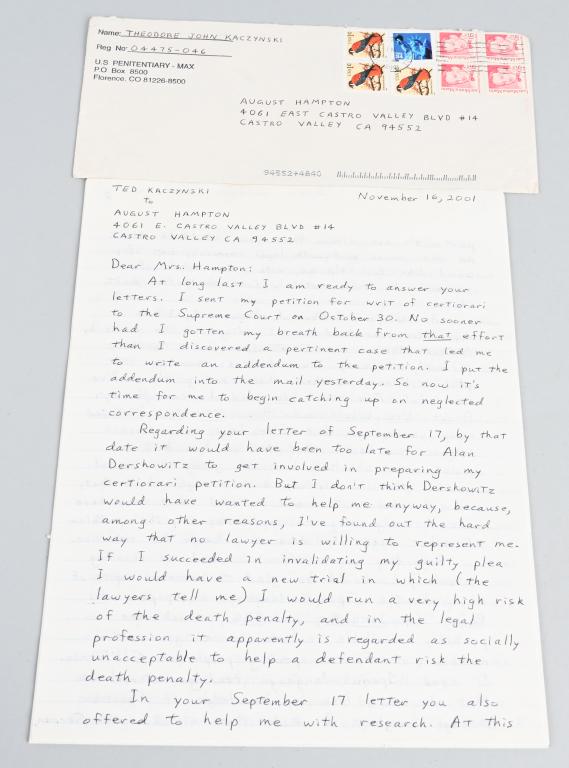 Name: THEODORE JOHN KACZYNSKI
Reg No: 04475-046
U.S PENITENTIARY - MAX
P.O Box 8500
Florence, CO 81226-8500
AUGUST HAMPTON
4061 EAST CASTRO VALLEY BLVD #14
CASTRO VALLEY CA 94552
94552+4840
TED KACZYNSKI
to
AUGUST HAMPTON
4061 E. CASTRO VALLEY BLVD #14
CASTRO VALLEY CA 94552
November 16, 2001
Dear Mrs. Hampton:
At long last I am ready to answer your
letters. I sent my petition for writ of certiorari
to the Supreme Court on October 30. No sooner
had I gotten my breath back from that effort
than I discovered a pertinent case that led me
to write an addendum to the petition. I put the
addendum into the mail yesterday. So now it's
time for me to begin catching up on neglected
correspondence.
Regarding your letter of September 17, by that
date it would have been too late for Alan
Dershowitz to get involved in preparing my
certiorari petition. But I don't think Dershowitz
would have wanted to help me anyway, because,
among other reasons, I've found out the hard
way that no lawyer is willing to represent me.
If I succeeded in invalidating my guilty plea
I would have a new trial in which (the
lawyers tell me) I would run a very high risk
of the death penalty, and in the legal
profession it apparently is regarded as socially
unacceptable to help a defendant risk the
death penalty.
In your September 17 letter you also
offered to help me with research. At this